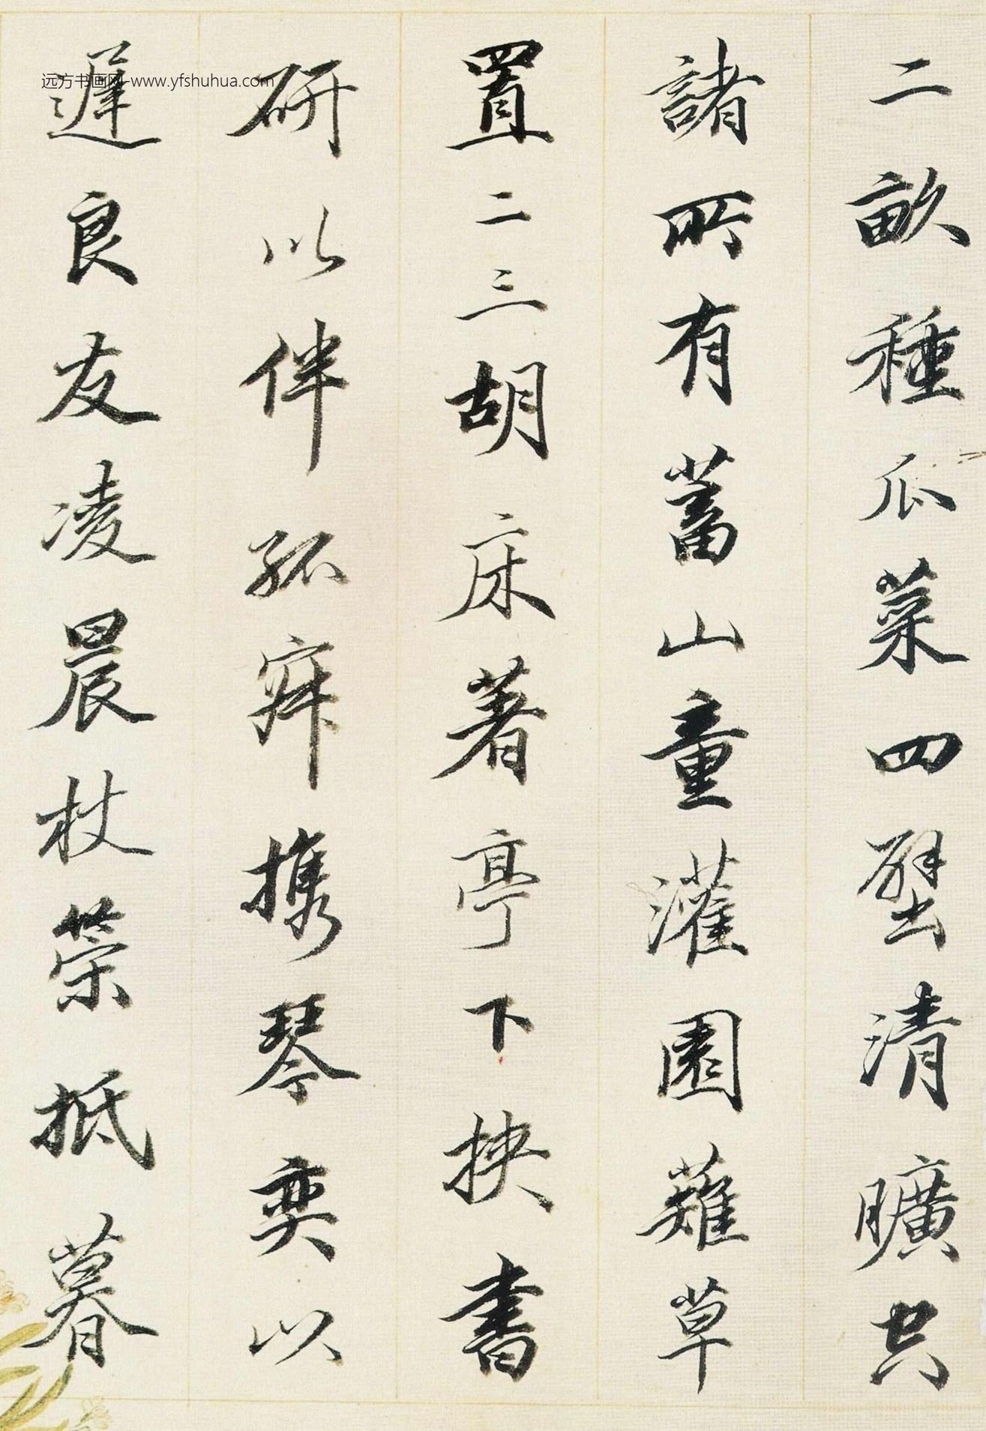 二畝種瓜菜四壁清曠共
諸所有蓄山童灌園薙草
置二三胡床著亭下挾書
研以伴孤寂攜琴奕以
遲良友凌晨杖策抵暮
远方书画网-www.yfshuhua.com